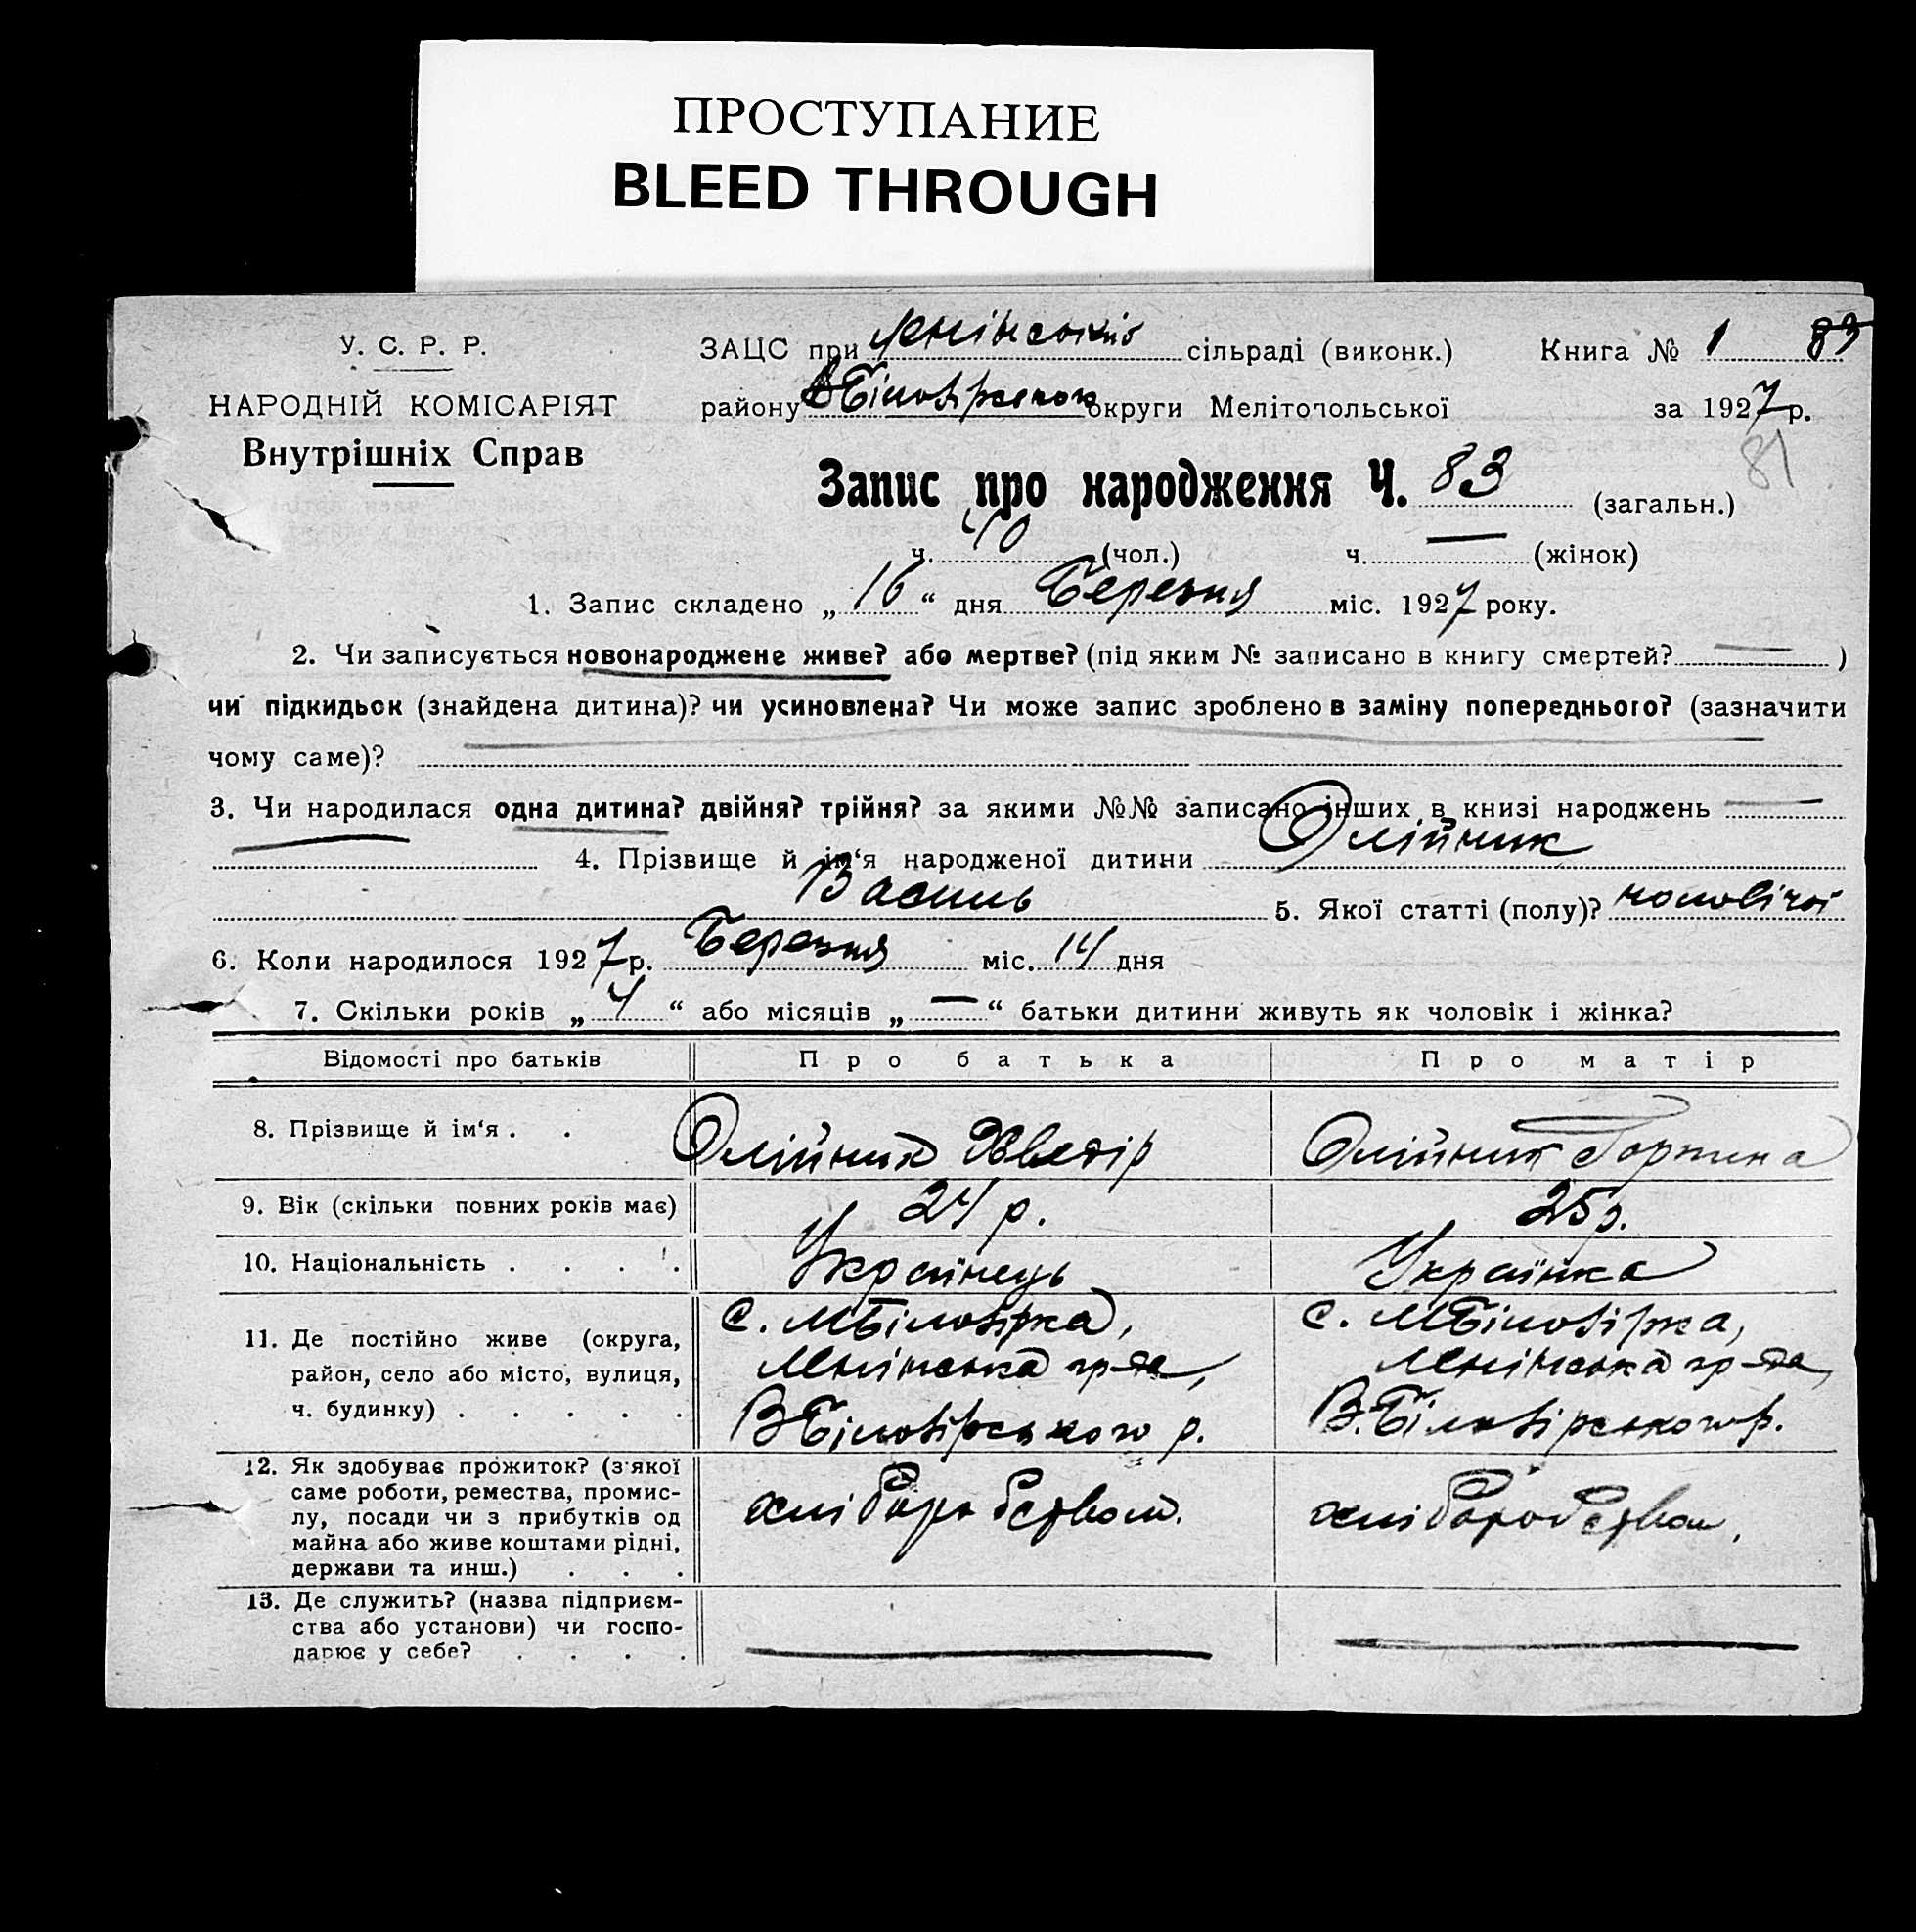 ПРОСТУПАНИЕ
BLEED THROUGH
У. С. Р. Р.
НАРОДНІЙ КОМІСАРІЯТ
Внутрішніх Справ
ЗАЦС при сільраді (виконк.) Книга № 1 83
району ВБіловірського округи Мелітопольської за 1927 р.
81
Запис про народження Ч. 83 (загальн.)
ч. 40 (чол.) ч. — (жінок)
1. Запис складено „ 16 “ дня Березня міс. 1927 року.
2. Чи записується новонароджене живе? або мертве? (під яким № записано в книгу смертей? — )
чи підкидьок (знайдена дитина)? чи усиновлена? Чи може запис зроблено в заміну попереднього? (зазначити
чому саме)?
3. Чи народилася одна дитина? двійня? трійня? за якими №№ записано інших в книзі народжень —
— 4. Прізвище й ім‘я народженої дитини Олійник
Василь 5. Якої статті (полу)? чоловічої
6. Коли народилося 1927 р. Березня міс. 14 дня
7. Скільки років „ 4 “ або місяців „ — “ батьки дитини живуть як чоловік і жінка?
Відомості про батьків Про батька Про матір
8. Прізвище й ім‘я . . Олійник Хведір Олійник Горпина
9. Вік (скільки повних років має) 24 р. 25 р.
10. Національність . . . . Українець Українка
11. Де постійно живе (округа, район, село або місто, вулиця, ч. будинку) . . . . .
с. МБіловірка, с. МБіловірка,
Ленінська гр-да, Ленінська гр-да,
ВБіловірського р. В.Біловірського р.
12. Як здобуває прожиток? (з якої
саме роботи, ремества, промис-
лу, посади чи з прибутків од
майна або живе коштами рідні,
держави та инш.) . . .
хліборобством. хліборобством.
13. Де служить? (назва підприєм-
ства або установи) чи госпо-
дарює у себе? . . . .
— —